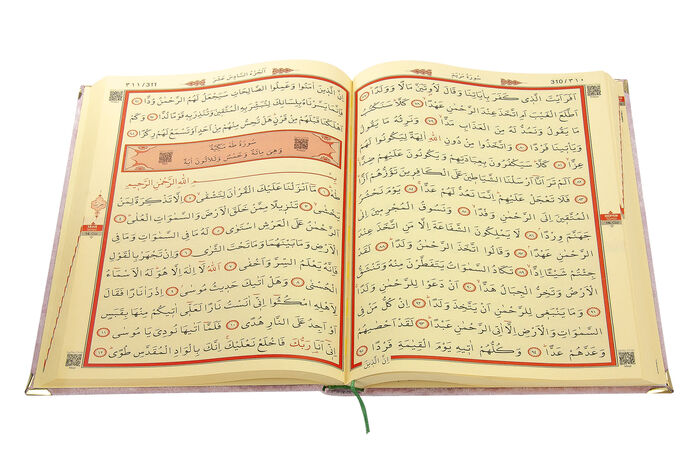 ٣١٠/310
سُورَةُ مَرْيَمَ
اَفَرَاَيْتَ الَّذِي كَفَرَ بِاٰيَاتِنَا وَقَالَ لَاُوتَيَنَّ مَالًا وَوَلَدًا ٧٧
اَطَّلَعَ الْغَيْبَ اَمِ اتَّخَذَ عِنْدَ الرَّحْمٰنِ عَهْدًا ٧٨ كَلَّا سَنَكْتُبُ
مَا يَقُولُ وَنَمُدُّ لَهُ مِنَ الْعَذَابِ مَدًّا ٧٩ وَنَرِثُهُ مَا يَقُولُ
وَيَأْتِينَا فَرْدًا ٨٠ وَاتَّخَذُوا مِنْ دُونِ اللّٰهِ اٰلِهَةً لِيَكُونُوا لَهُمْ
عِزًّا ٨١ كَلَّا سَيَكْفُرُونَ بِعِبَادَتِهِمْ وَيَكُونُونَ عَلَيْهِمْ ضِدًّا
٨٢ اَلَمْ تَرَ اَنَّا اَرْسَلْنَا الشَّيَاطِينَ عَلَى الْكَافِرِينَ تَؤُزُّهُمْ اَزًّا
٨٣ فَلَا تَعْجَلْ عَلَيْهِمْ اِنَّمَا نَعُدُّ لَهُمْ عَدًّا ٨٤ يَوْمَ نَحْشُرُ
الْمُتَّقِينَ اِلَى الرَّحْمٰنِ وَفْدًا ٨٥ وَنَسُوقُ الْمُجْرِمِينَ اِلٰى
جَهَنَّمَ وِرْدًا ٨٦ لَا يَمْلِكُونَ الشَّفَاعَةَ اِلَّا مَنِ اتَّخَذَ عِنْدَ
الرَّحْمٰنِ عَهْدًا ٨٧ وَقَالُوا اتَّخَذَ الرَّحْمٰنُ وَلَدًا ٨٨ لَقَدْ
جِئْتُمْ شَيْـًٔا اِدًّا ٨٩ تَكَادُ السَّمٰوَاتُ يَتَفَطَّرْنَ مِنْهُ وَتَنْشَقُّ
الْاَرْضُ وَتَخِرُّ الْجِبَالُ هَدًّا ٩٠ اَنْ دَعَوْا لِلرَّحْمٰنِ وَلَدًا
٩١ وَمَا يَنْبَغِي لِلرَّحْمٰنِ اَنْ يَتَّخِذَ وَلَدًا ٩٢ اِنْ كُلُّ مَنْ فِي
السَّمٰوَاتِ وَالْاَرْضِ اِلَّا اٰتِي الرَّحْمٰنِ عَبْدًا ٩٣ لَقَدْ اَحْصٰيهُمْ
وَعَدَّهُمْ عَدًّا ٩٤ وَكُلُّهُمْ اٰتِيهِ يَوْمَ الْقِيٰمَةِ فَرْدًا ٩٥
اِنَّ الَّذِينَ
اَلْجُزْءُ السَّادِسُ عَشَرَ
٣١١/311
اِنَّ الَّذِينَ اٰمَنُوا وَعَمِلُوا الصَّالِحَاتِ سَيَجْعَلُ لَهُمُ الرَّحْمٰنُ وُدًّا ٩٦
فَاِنَّمَا يَسَّرْنَاهُ بِلِسَانِكَ لِتُبَشِّرَ بِهِ الْمُتَّقِينَ وَتُنْذِرَ بِهِ قَوْمًا لُدًّا ٩٧ وَكَمْ
اَهْلَكْنَا قَبْلَهُمْ مِنْ قَرْنٍ هَلْ تُحِسُّ مِنْهُمْ مِنْ اَحَدٍ اَوْ تَسْمَعُ لَهُمْ رِكْزًا ٩٨
سُورَةُ طٰهٰ مَكِّيَّةٌ
وَهِيَ مِائَةٌ وَخَمْسٌ وَثَلَاثُونَ اٰيَةً
بِسْمِ اللّٰهِ الرَّحْمٰنِ الرَّحِيمِ
طٰهٰ ١ مَا اَنْزَلْنَا عَلَيْكَ الْقُرْاٰنَ لِتَشْقٰى ٢ اِلَّا تَذْكِرَةً لِمَنْ
يَخْشٰى ٣ تَنْزِيلًا مِمَّنْ خَلَقَ الْاَرْضَ وَالسَّمٰوَاتِ الْعُلٰى ٤
اَلرَّحْمٰنُ عَلَى الْعَرْشِ اسْتَوٰى ٥ لَهُ مَا فِي السَّمٰوَاتِ وَمَا فِي
الْاَرْضِ وَمَا بَيْنَهُمَا وَمَا تَحْتَ الثَّرٰى ٦ وَاِنْ تَجْهَرْ بِالْقَوْلِ
فَاِنَّهُ يَعْلَمُ السِّرَّ وَاَخْفٰى ٧ اَللّٰهُ لَا اِلٰهَ اِلَّا هُوَ لَهُ الْاَسْمَاءُ
الْحُسْنٰى ٨ وَهَلْ اَتٰيكَ حَدِيثُ مُوسٰى ٩ اِذْ رَاٰ نَارًا فَقَالَ
لِاَهْلِهِ امْكُثُوا اِنِّي اٰنَسْتُ نَارًا لَعَلِّي اٰتِيكُمْ مِنْهَا بِقَبَسٍ
اَوْ اَجِدُ عَلَى النَّارِ هُدًى ١٠ فَلَمَّا اَتٰيهَا نُودِيَ يَا مُوسٰى ١١
اِنِّي اَنَا رَبُّكَ فَاخْلَعْ نَعْلَيْكَ اِنَّكَ بِالْوَادِ الْمُقَدَّسِ طُوًى ١٢